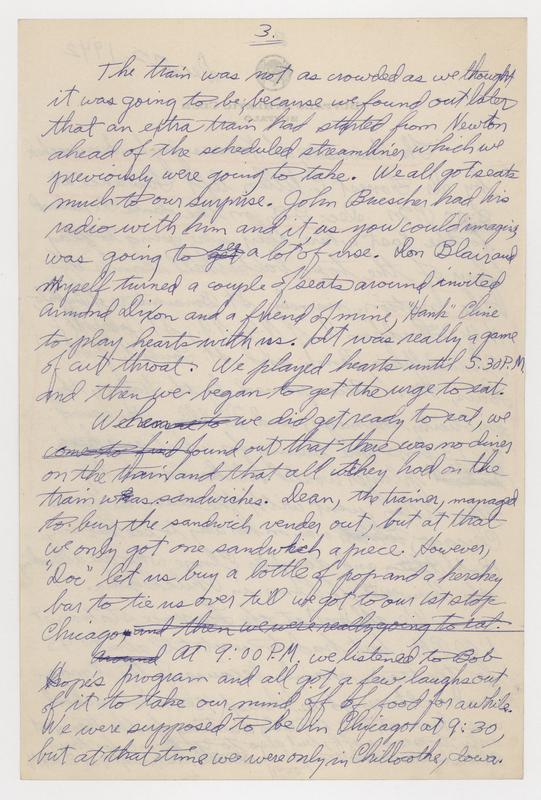 3.
The train was not as crowded as we thought
it was going to be, because we found out later
that an extra train had started from Newton
ahead of the scheduled streamliner which we
previously were going to take. We all got seats
much to our surprise. John Buescher had his
radio with him and it as you could imagine
was going to get a lot of use. Don Blair and
myself turned a couple of seats around invited
Armond Dixon and a friend of mine, "Hank" Cline
to play hearts with us. It was really a game
of cut throat. We played hearts until 5:30 P.M.
and then we began to get the urge to eat.
We we did get ready to eat, we
come to find found out that there was no diner
on the train and that all they had on the
train was sandwiches. Dean, the trainer, managed
to buy the sandwich vender out, but at that
we only got one sandwich a piece. However,
"Doc" let us buy a bottle of pop and a hershey
bar to tie us over till we got to our 1st stop
Chicago, and then we were really going to eat.
Around At 9:00 P.M. we listened to Bob
Hope's program and all got a few laughs out
of it to take our mind off of food for a while.
We were supposed to be in Chicago at 9:30,
but at that time we were only in Chillicothe, Iowa.